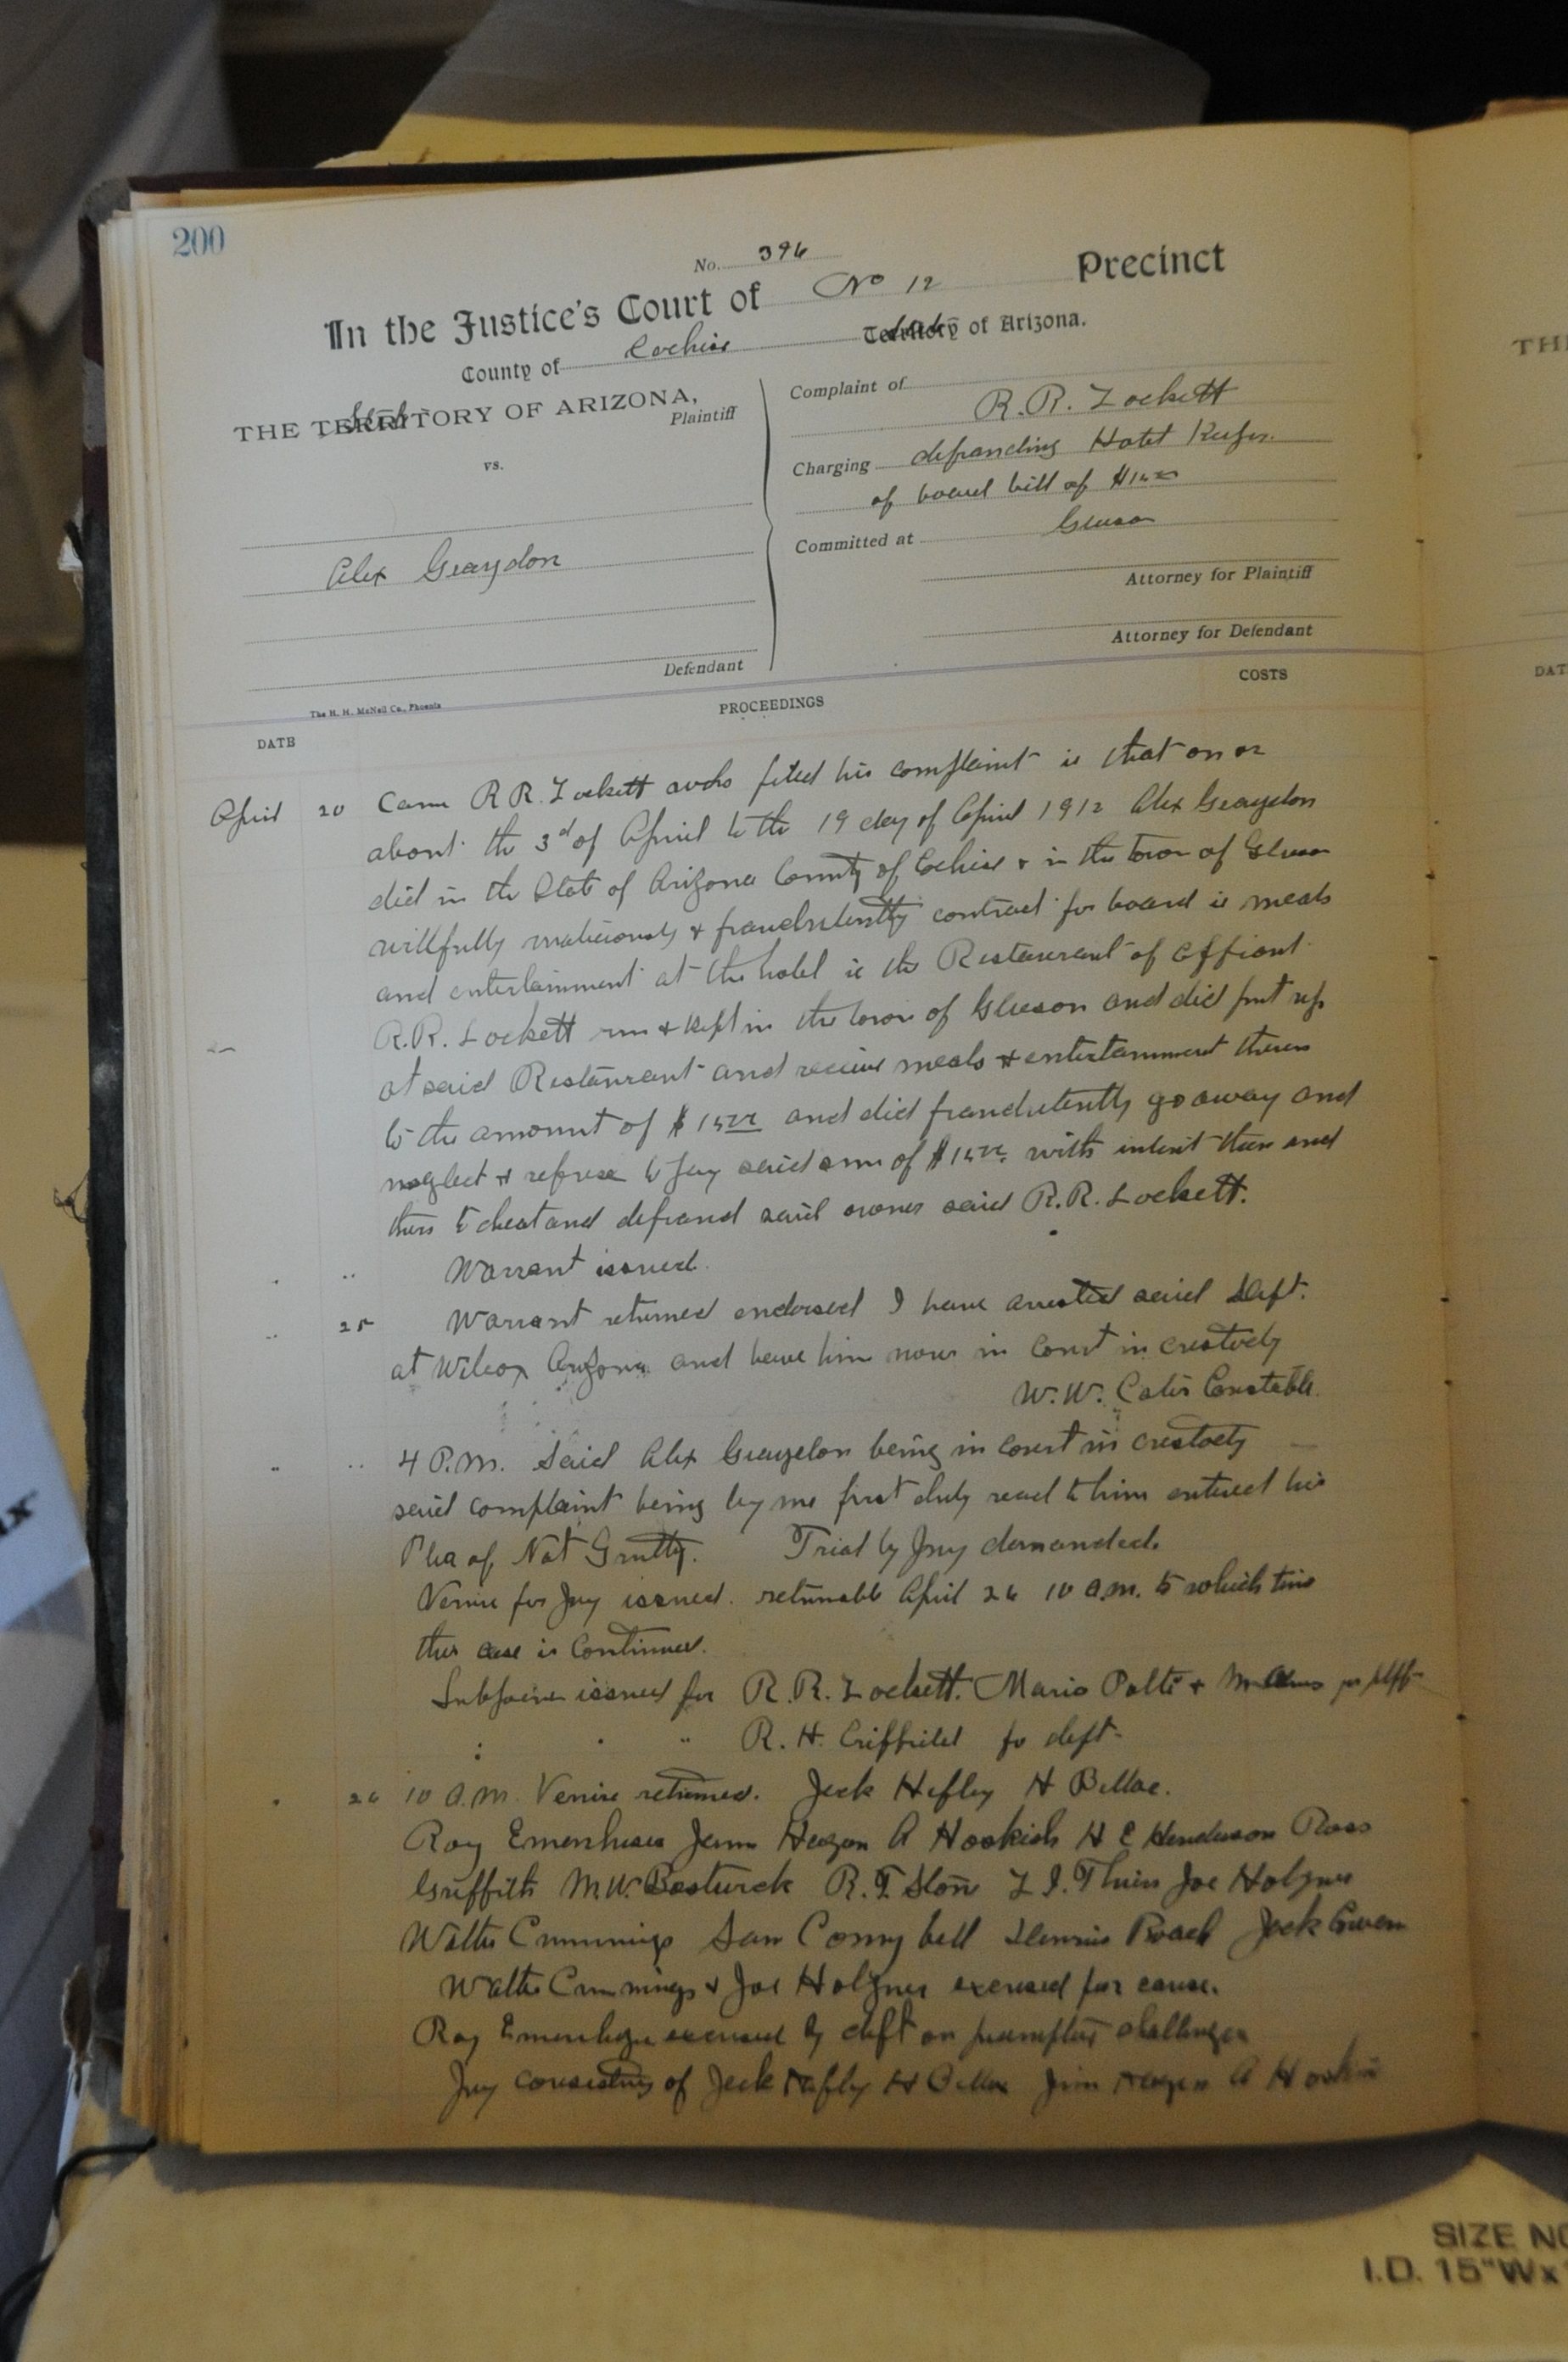 200
No. 396
In the Justice's Court of No 12 Precinct
County of Cochise State Territory of Arizona.
THE TERRITORY OF ARIZONA, State
Plaintiff
vs.
Alex Graydon
Defendant
Complaint of
R.R. Lockett
Charging defrauding Hotel Keeper
of board bill of
Committed at Gleeson
Attorney for Plaintiff
Attorney for Defendant
The H. H. McNeil Co., Phoenix
DATE PROCEEDINGS COSTS
April 20 Came R R. Lockett who filed his complaint ie that on or
about the 3d of April to the 19 day of April 1912 Alex Graydon
did in the State of Arizona County of Cochise & in the town of Gleeson
willfully maliciously & fraudulently contract for board ie meals
and entertainment at the hotel ie the Restaurant of affiant
R.R. Lockett run & kept in the town of Gleeson and did put up
at said Restaurant and receive meals & entertainment therein
to the amount of $ and did fraudulently go away and
neglect & refuse to pay said sum of $ with intent then and
there to cheat and defraud said owner said R.R. Lockett.
" " Warrant issued.
" 25 Warrant returned endorsed I have arrested said Deft.
at Wilcox Arizona and have him now in Court in custody
W.W. Constable.
" " 4 P.M. Said Alex Graydon being in court in custody
said complaint being by me first duly read to him entered his
Plea of Not Guilty. Trial by Jury demanded.
Venire for Jury issued. returnable April 26 10 a.m. to which time
this case is Continued.
Subpoena issued for R.R. Lockett. Mario & for plff
" " " R. H. for deft.
" 26 10 a.m. Venire returned. Jack Hefley H
Roy A Hoskish H E Henderson Ross
Griffith M.W. Bostwick R.T. L I. Joe Holzner
Walter Cummings Sam Roach Jack
Walter Cummings & Joe Holzner excused for cause.
Roy excused by deft on challenge
Jury consisting of Jack Hefley H Jim A